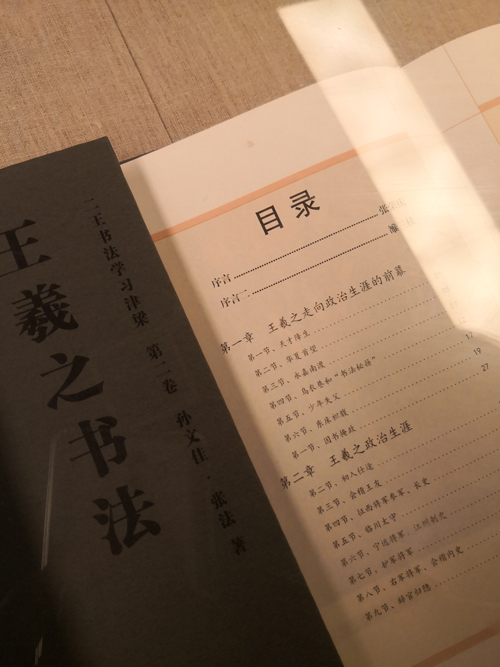 王羲之书法
二王书法学习津梁 第二卷 孙文佳、张法 著
目录
序言 张
序言二
第一章 王羲之走向政治生涯的前幕
第一节、天才降生
第二节、华夏首望
第三节、永嘉南渡
第四节、乌衣巷和“书法秘籍” 17
第五节、少年失父 19
第六节、东床坦腹 27
第一节、因书掩政
第二章 王羲之政治生涯
第二节、初入仕途
第三节、会稽王友
第四节、征西将军参军、长史
第五节、临川太守
第六节、宁远将军、江州刺史
第七节、护军将军
第八节、右军将军、会稽内史
第九节、辞官归隐